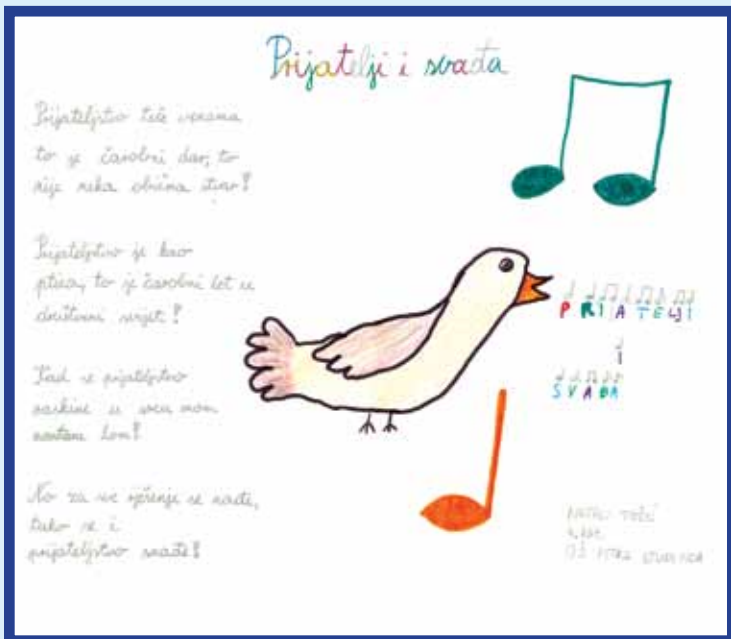 Prijatelji i svađa
Prijateljstvo teče venama
to je čarobni dar, to
nije neka obična stvar!
Prijateljstvo je kao
ptica, to je čarobni let u
društveni svijet!
Kad se prijateljstvo
raskine u srcu mom
nastane lom!
No za sve rješenje se nađe,
tako se i
prijateljstvo snađe!
PRIJATELJI
I
SVAĐA
4.
OŠ PETRA STUDENCA